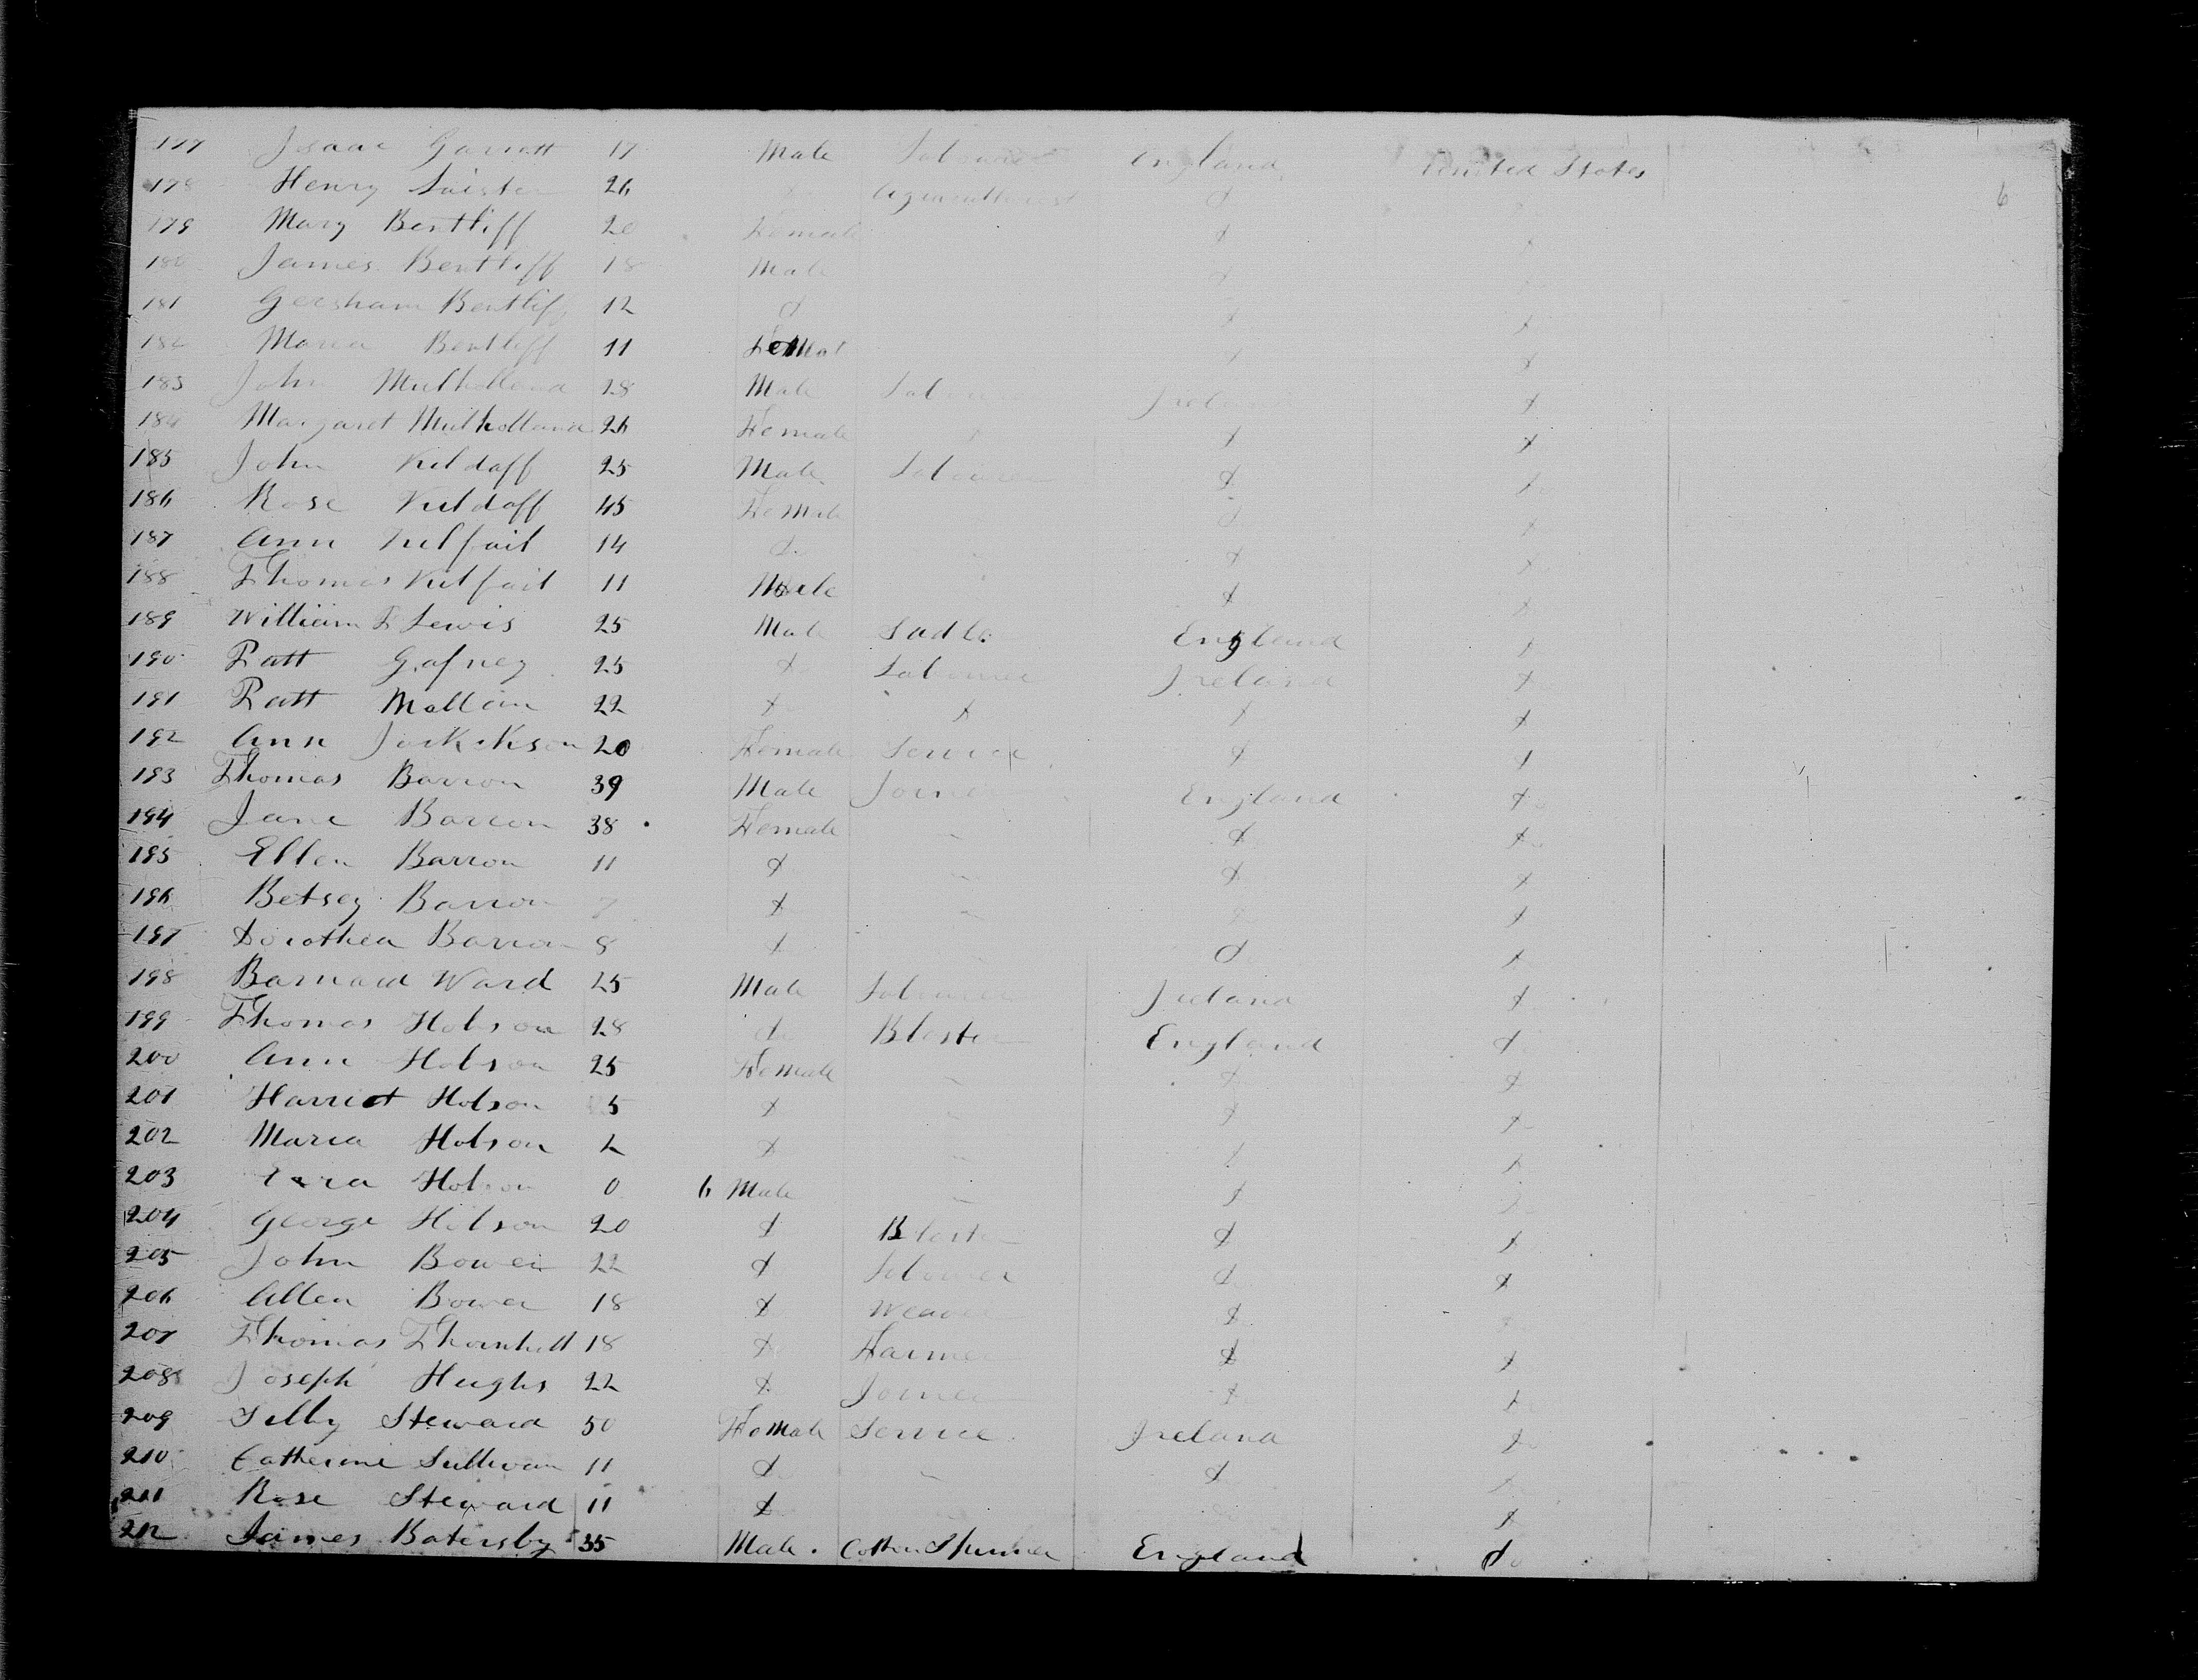 177 Isaac Garratt 17 Male Labourer England United States
178 Henry 26 do Agriculturist do
6
179 Mary Bentliff 20 Female do do
180 James Bentliff 18 Male do
181 Gersham Bentliff 12 do do do
182 Maria Bentliff 11 Femal do do
183 John Mulholland 28 Male Labourer Ireland do
184 Margaret Mulholland 26 Female do do
185 John Kildaff 25 Male Labourer do do
186 Rose Kildaff 45 Female do do
187 Ann 14 do do do
188 Thomas 11 Male do do
189 William T Lewis 25 Male Sadler England do
190 Patt Gafney 25 do Labourer Ireland do
191 Patt 22 do do do do
192 Ann 20 Female Service do do
193 Thomas Barron 39 Male Joiner England do
194 Jane Barron 38 Female do do
195 Ellen Barron 11 do do do
196 Betsey Barron 7 do do do
197 Dorothea Barron 8 do do do
198 Barnard Ward 25 Male Labourer Ireland do
199 Thomas Hobson 28 do England do
200 Ann Hobson 25 Female do do
201 Harriet Hobson 5 do do do
202 Maria Hobson 2 do do do
203 Hobson 0 6 Male do do
204 George Hobson 20 do do do
205 John Bower 22 do Labourer do do
206 Allen Bower 18 do Weaver do do
207 Thomas Thornhill 18 do Farmer do do
208 Joseph Hughs 22 do Joiner do do
209 Steward 50 Female Service Ireland do
210 Catherine Sullivan 11 do do do
211 Rose Steward 11 do do
212 James Batersby 35 Male Cotton Spinner England do